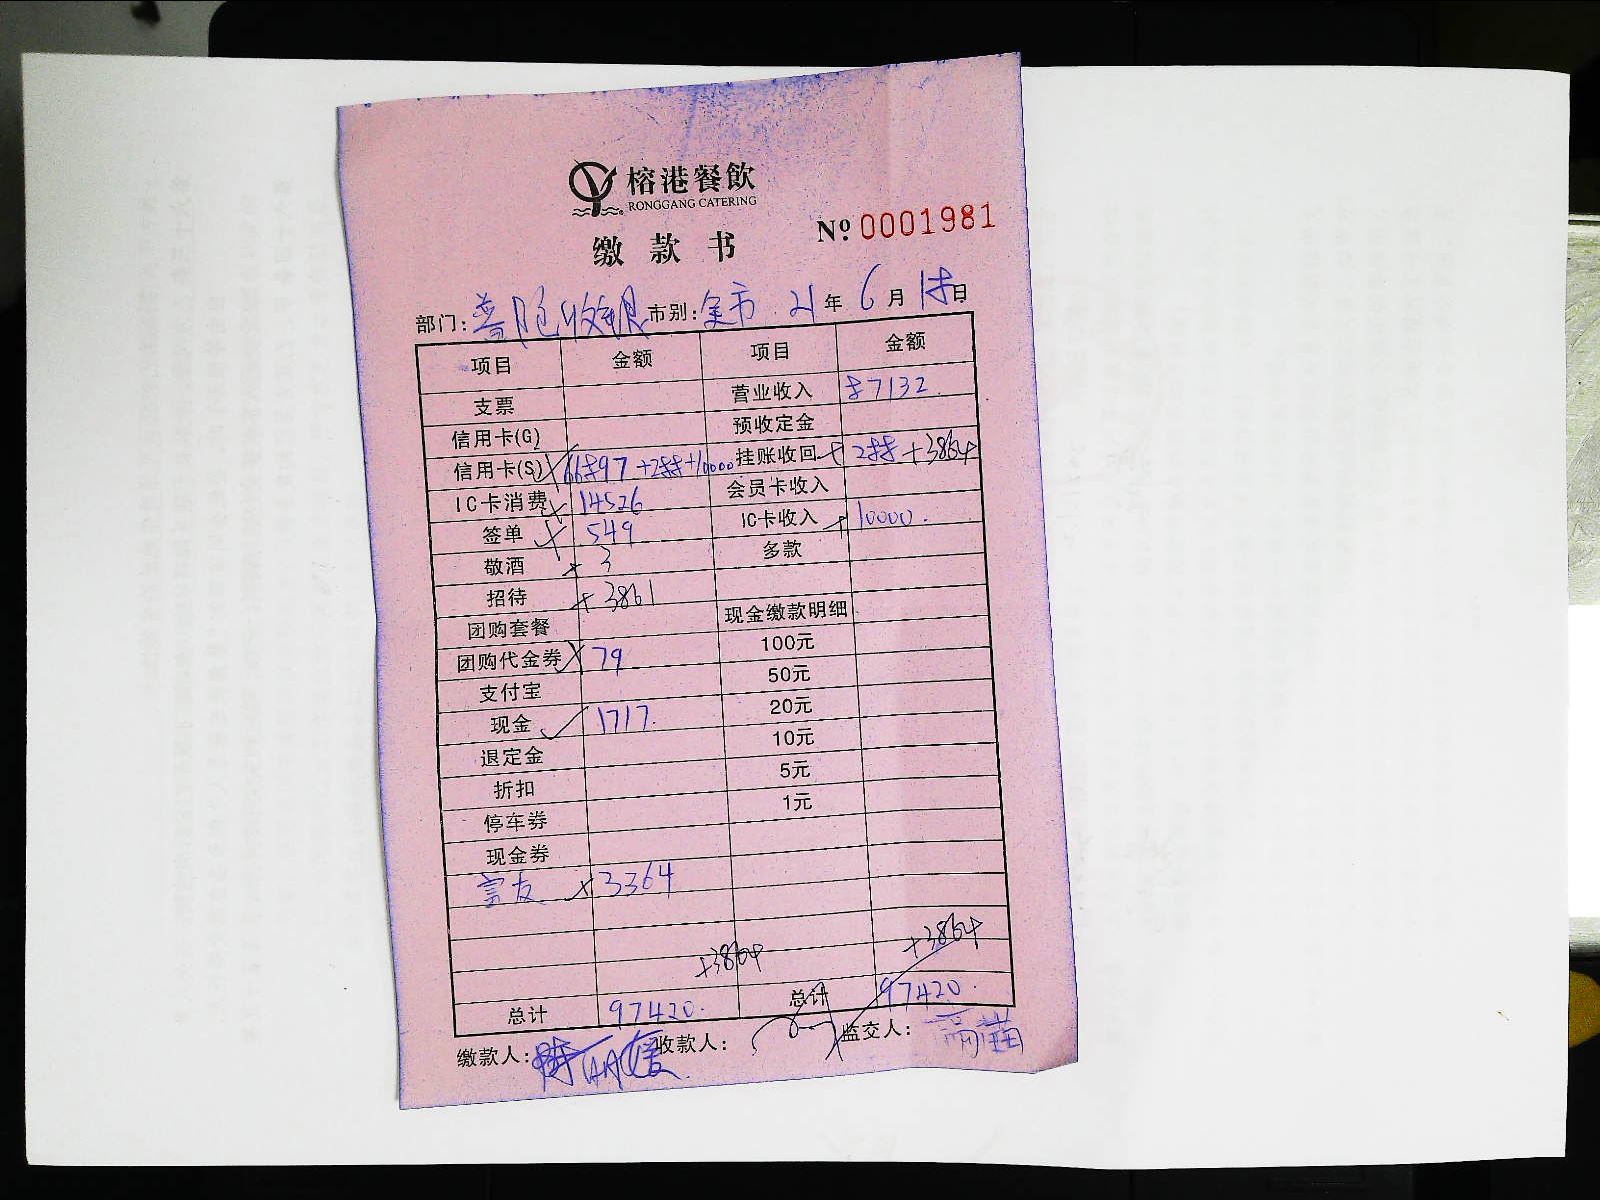 榕港餐飲
RONGGANG CATERING
缴款书 № 0001981
部门: 收银 市别: 全市 21年6月18日
项目 金额 项目 金额
支票 营业收入 87132
信用卡(G) 预收定金
信用卡(S) 66897+288+10000 挂账收回 288 +3864
IC卡消费 14526 会员卡收入
签单 549 IC卡收入 10000.
敬酒 3 多款
招待 +3861
团购套餐 现金缴款明细
团购代金券 79 100元
支付宝 50元
现金 1717. 20元
退定金 10元
折扣 5元
停车券 1元
现金券
3364
+3864 +3864
总计 97420. 总计 97420.
缴款人: 收款人: 监交人: